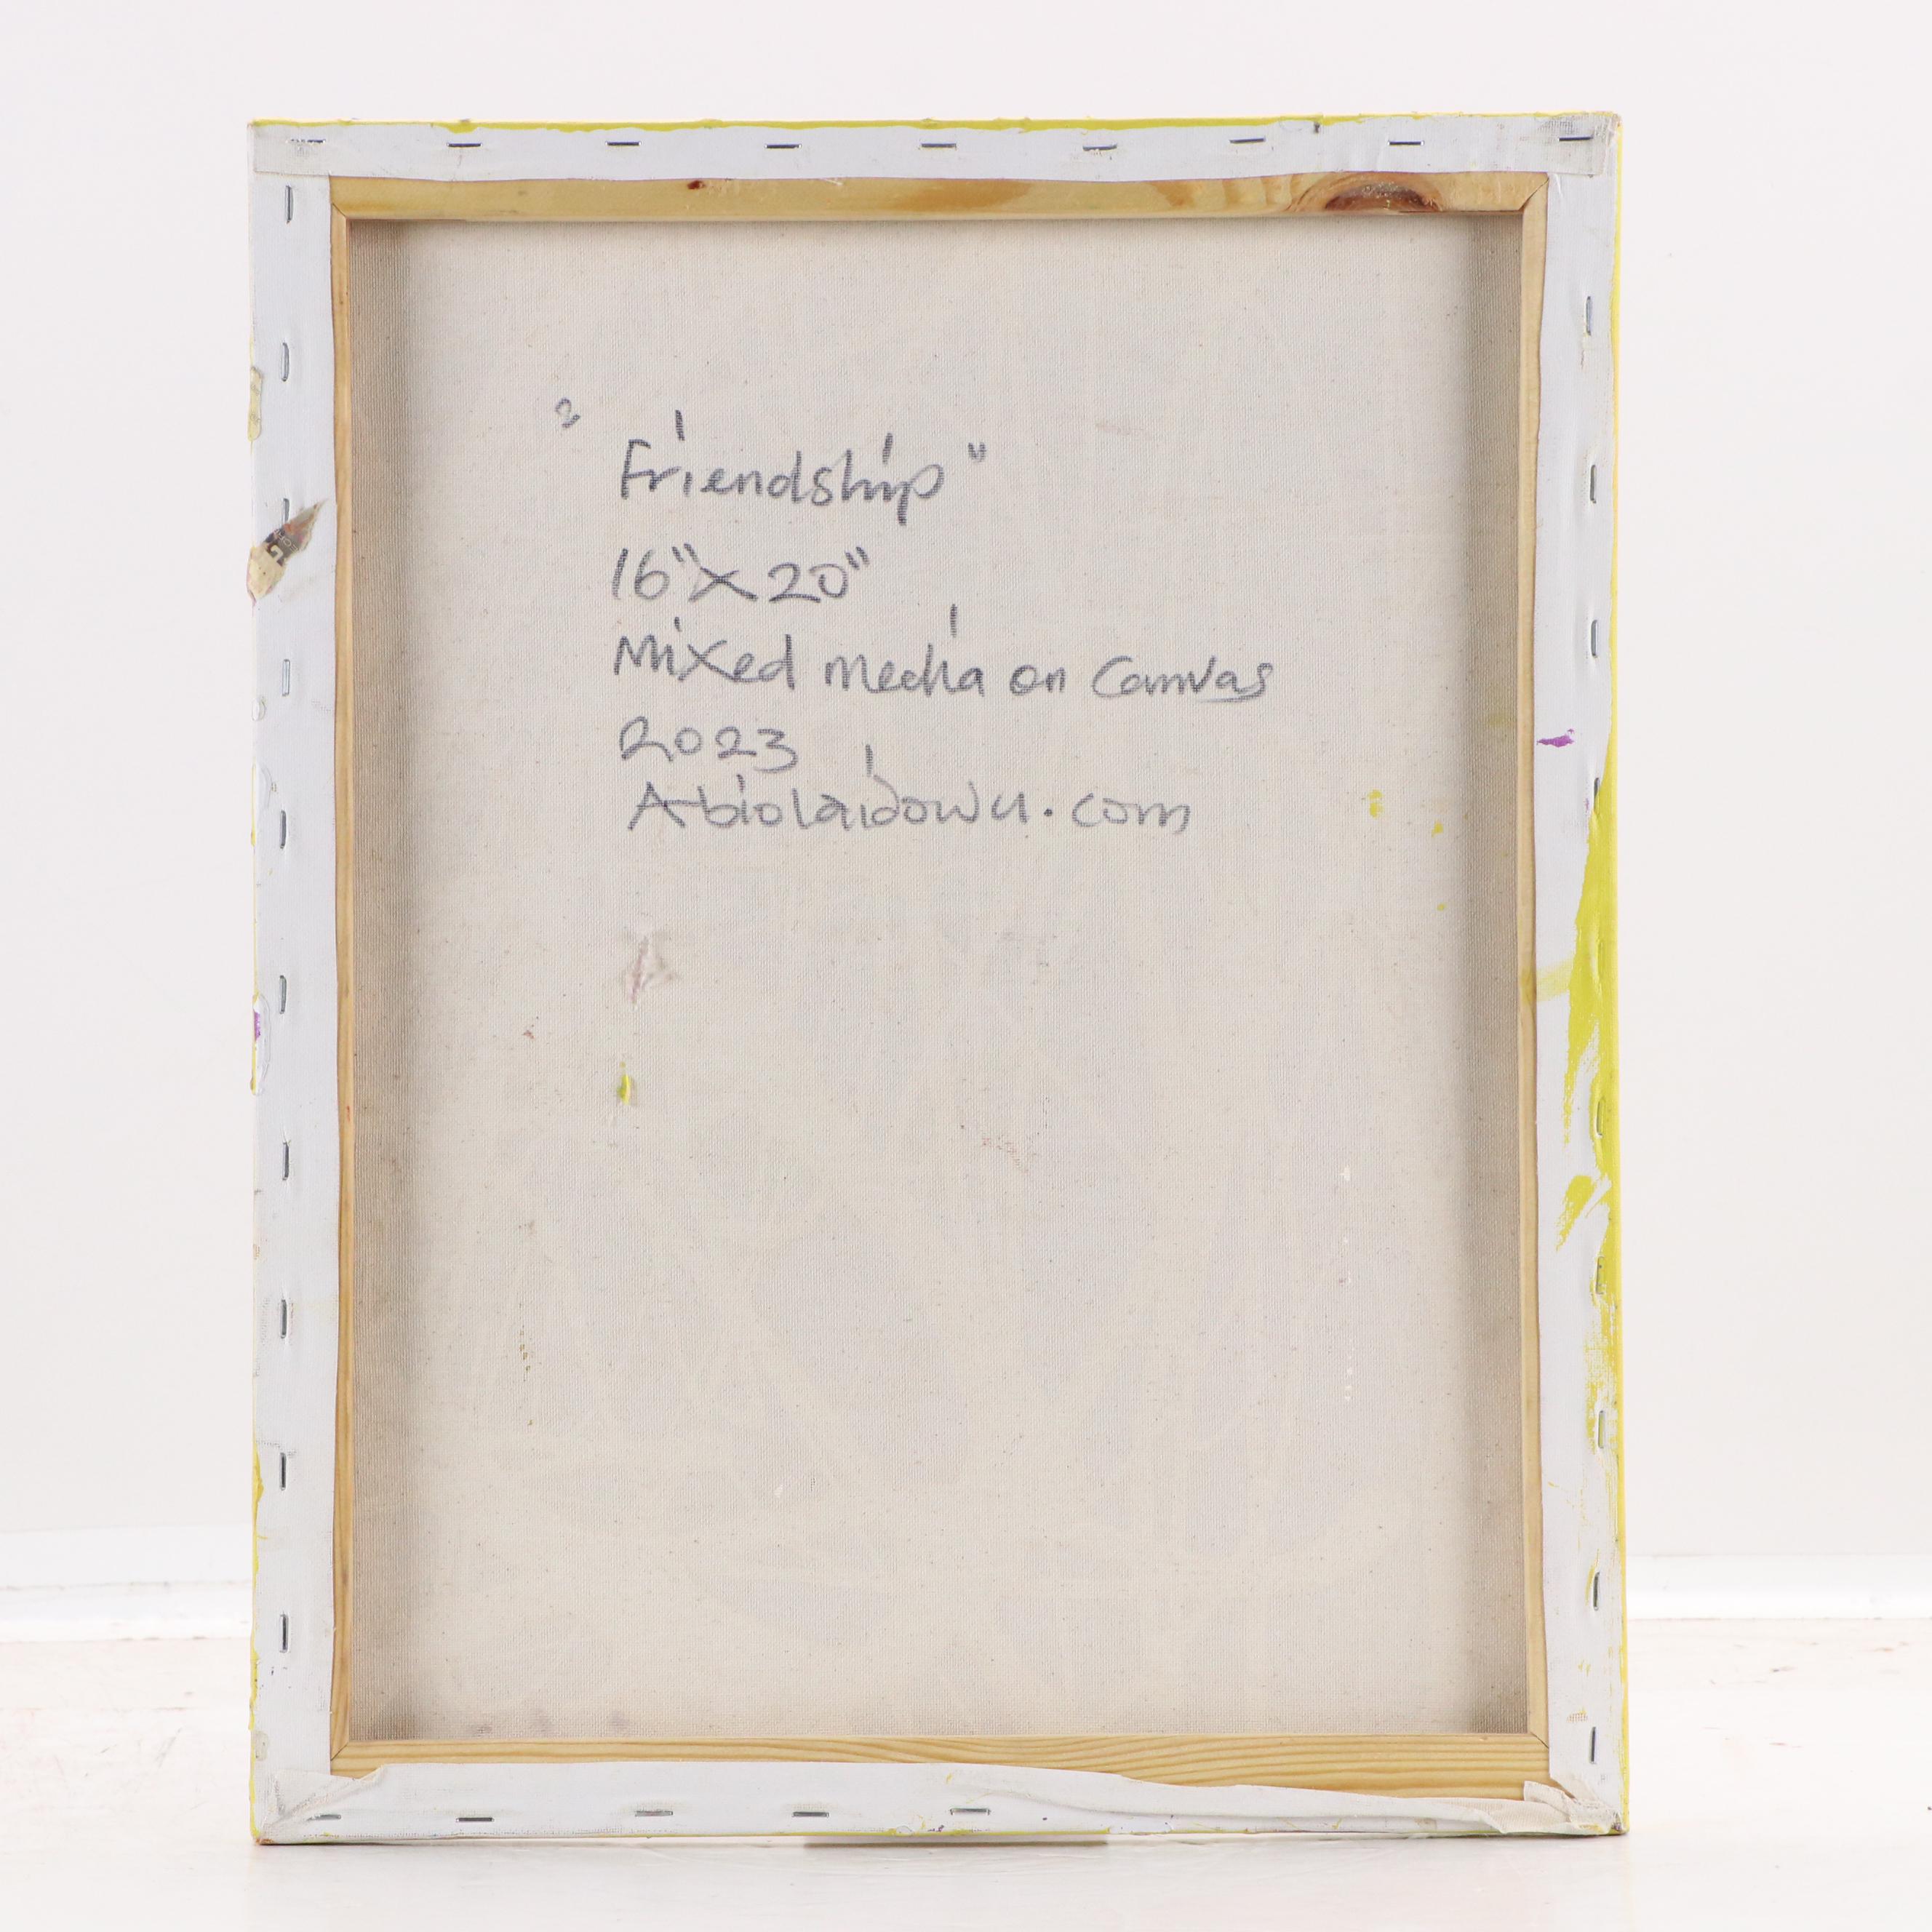 "Friendship"
16"X20"
Mixed media on Canvas
2023
Abiolaidowu.com